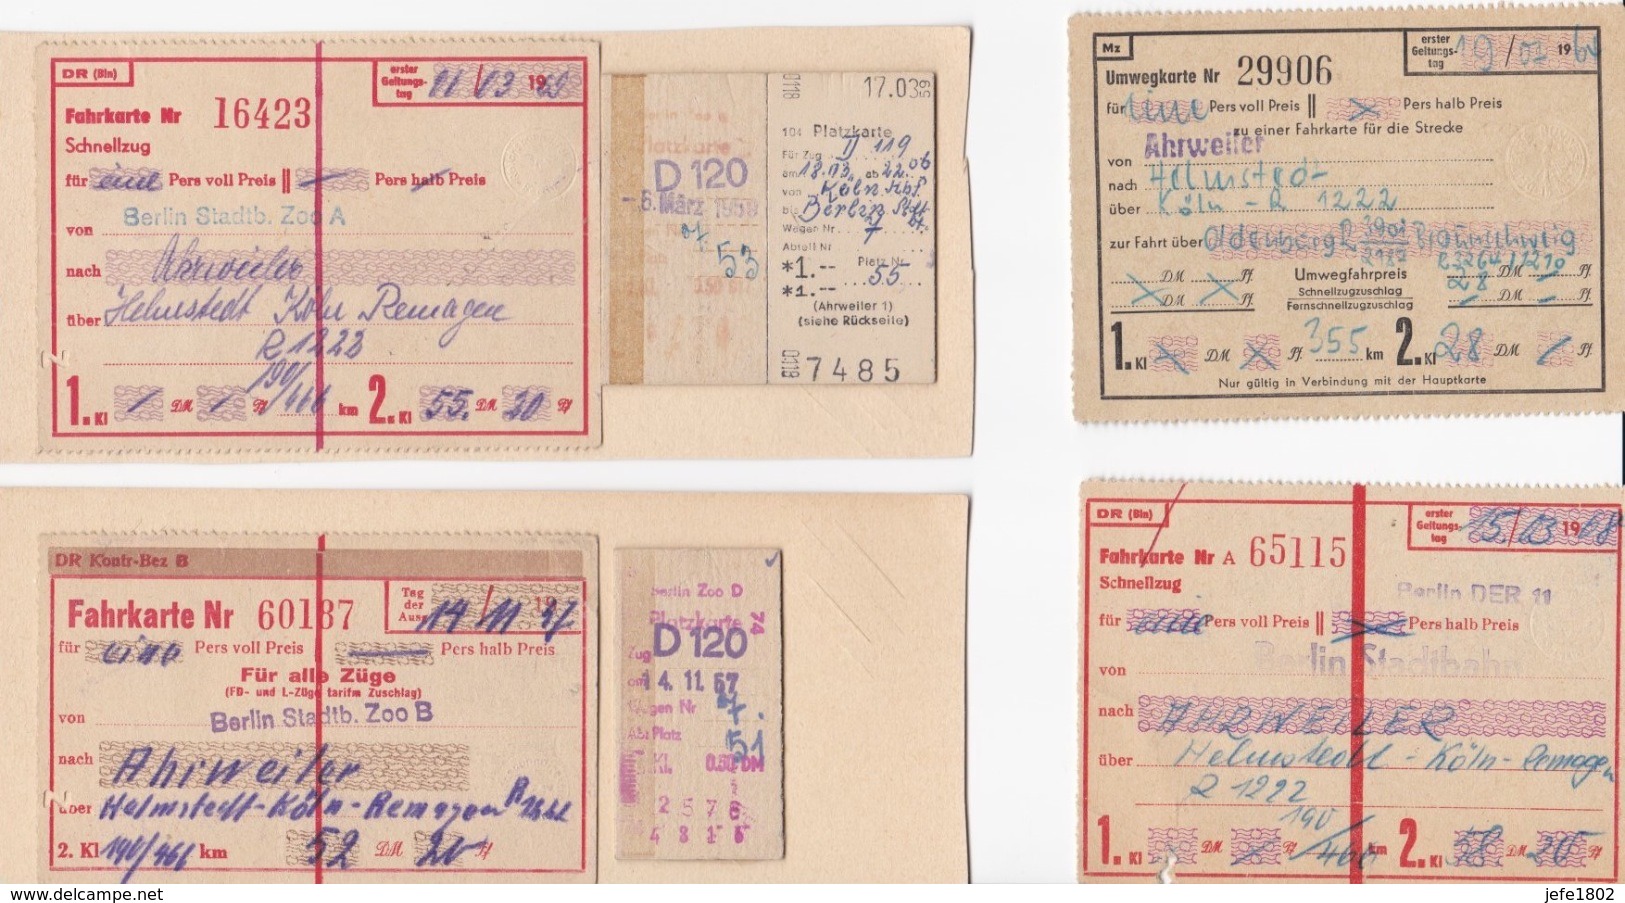 DR (Bln)
erster
Geltungs-
tag
01/03 1959
Fahrkarte Nr 16423
Schnellzug
für eine Pers voll Preis || — Pers halb Preis
Berlin Stadtb. Zoo A
von
nach Ahrweiler
über Helmstedt Köln Remagen
R 1222
190/466 km
1. Kl / DM / Pf
2. Kl 55. DM 20 Pf
Berlin Zoo
Platzkarte
D 120
- 6. März 1959
53
0118
17.03 59
104 Platzkarte
Für Zug D 119
am 18.03. ab 22.06
von Köln Hbf
bis Berlin Stdt
Wagen Nr 7
Abteil Nr
*1.-- Platz Nr
*1.-- 55
(Ahrweiler 1)
(siehe Rückseite)
0118
7485
Mz
erster
Geltungs-
tag
19/ 19
Umwegkarte Nr 29906
für eine Pers voll Preis || x Pers halb Preis
zu einer Fahrkarte für die Strecke
von Ahrweiler
nach Helmstedt
über Köln - R 1222
zur Fahrt über Oldenburg R Braunschweig
R 3264/1210
DM Pf Umwegfahrpreis 28 DM — Pf
Schnellzugzuschlag
DM Pf Fernschnellzugzuschlag — DM — Pf
1. Kl x DM x Pf 355 km 2. Kl 28 DM / Pf
Nur gültig in Verbindung mit der Hauptkarte
DR Kontr-Bez B
Fahrkarte Nr 60187
Tag
der
Ausg
14/11 57
für eine Pers voll Preis — Pers halb Preis
Für alle Züge
(FD- und L-Züge tarifm Zuschlag)
von Berlin Stadtb. Zoo B
nach Ahrweiler
über Helmstedt-Köln-Remagen R 1222
2. Kl 190/466 km 52 DM 20 Pf
Berlin Zoo D
Platzkarte 74
Zug D 120
am 14.11.57
Wagen Nr 7.
Abt Platz 51
Kl. 0.50 DM
DR (Bln)
erster
Geltungs-
tag
15/03 19
Fahrkarte Nr A 65115
Schnellzug
Berlin DER 11
für eine Pers voll Preis || x Pers halb Preis
Berlin Stadtbahn
von
nach AHRWEILER
über Helmstedt - Köln - Remagen
R 1222
190/466 km
1. Kl DM Pf
2. Kl DM 20 Pf
www.delcampe.net
jefe1802